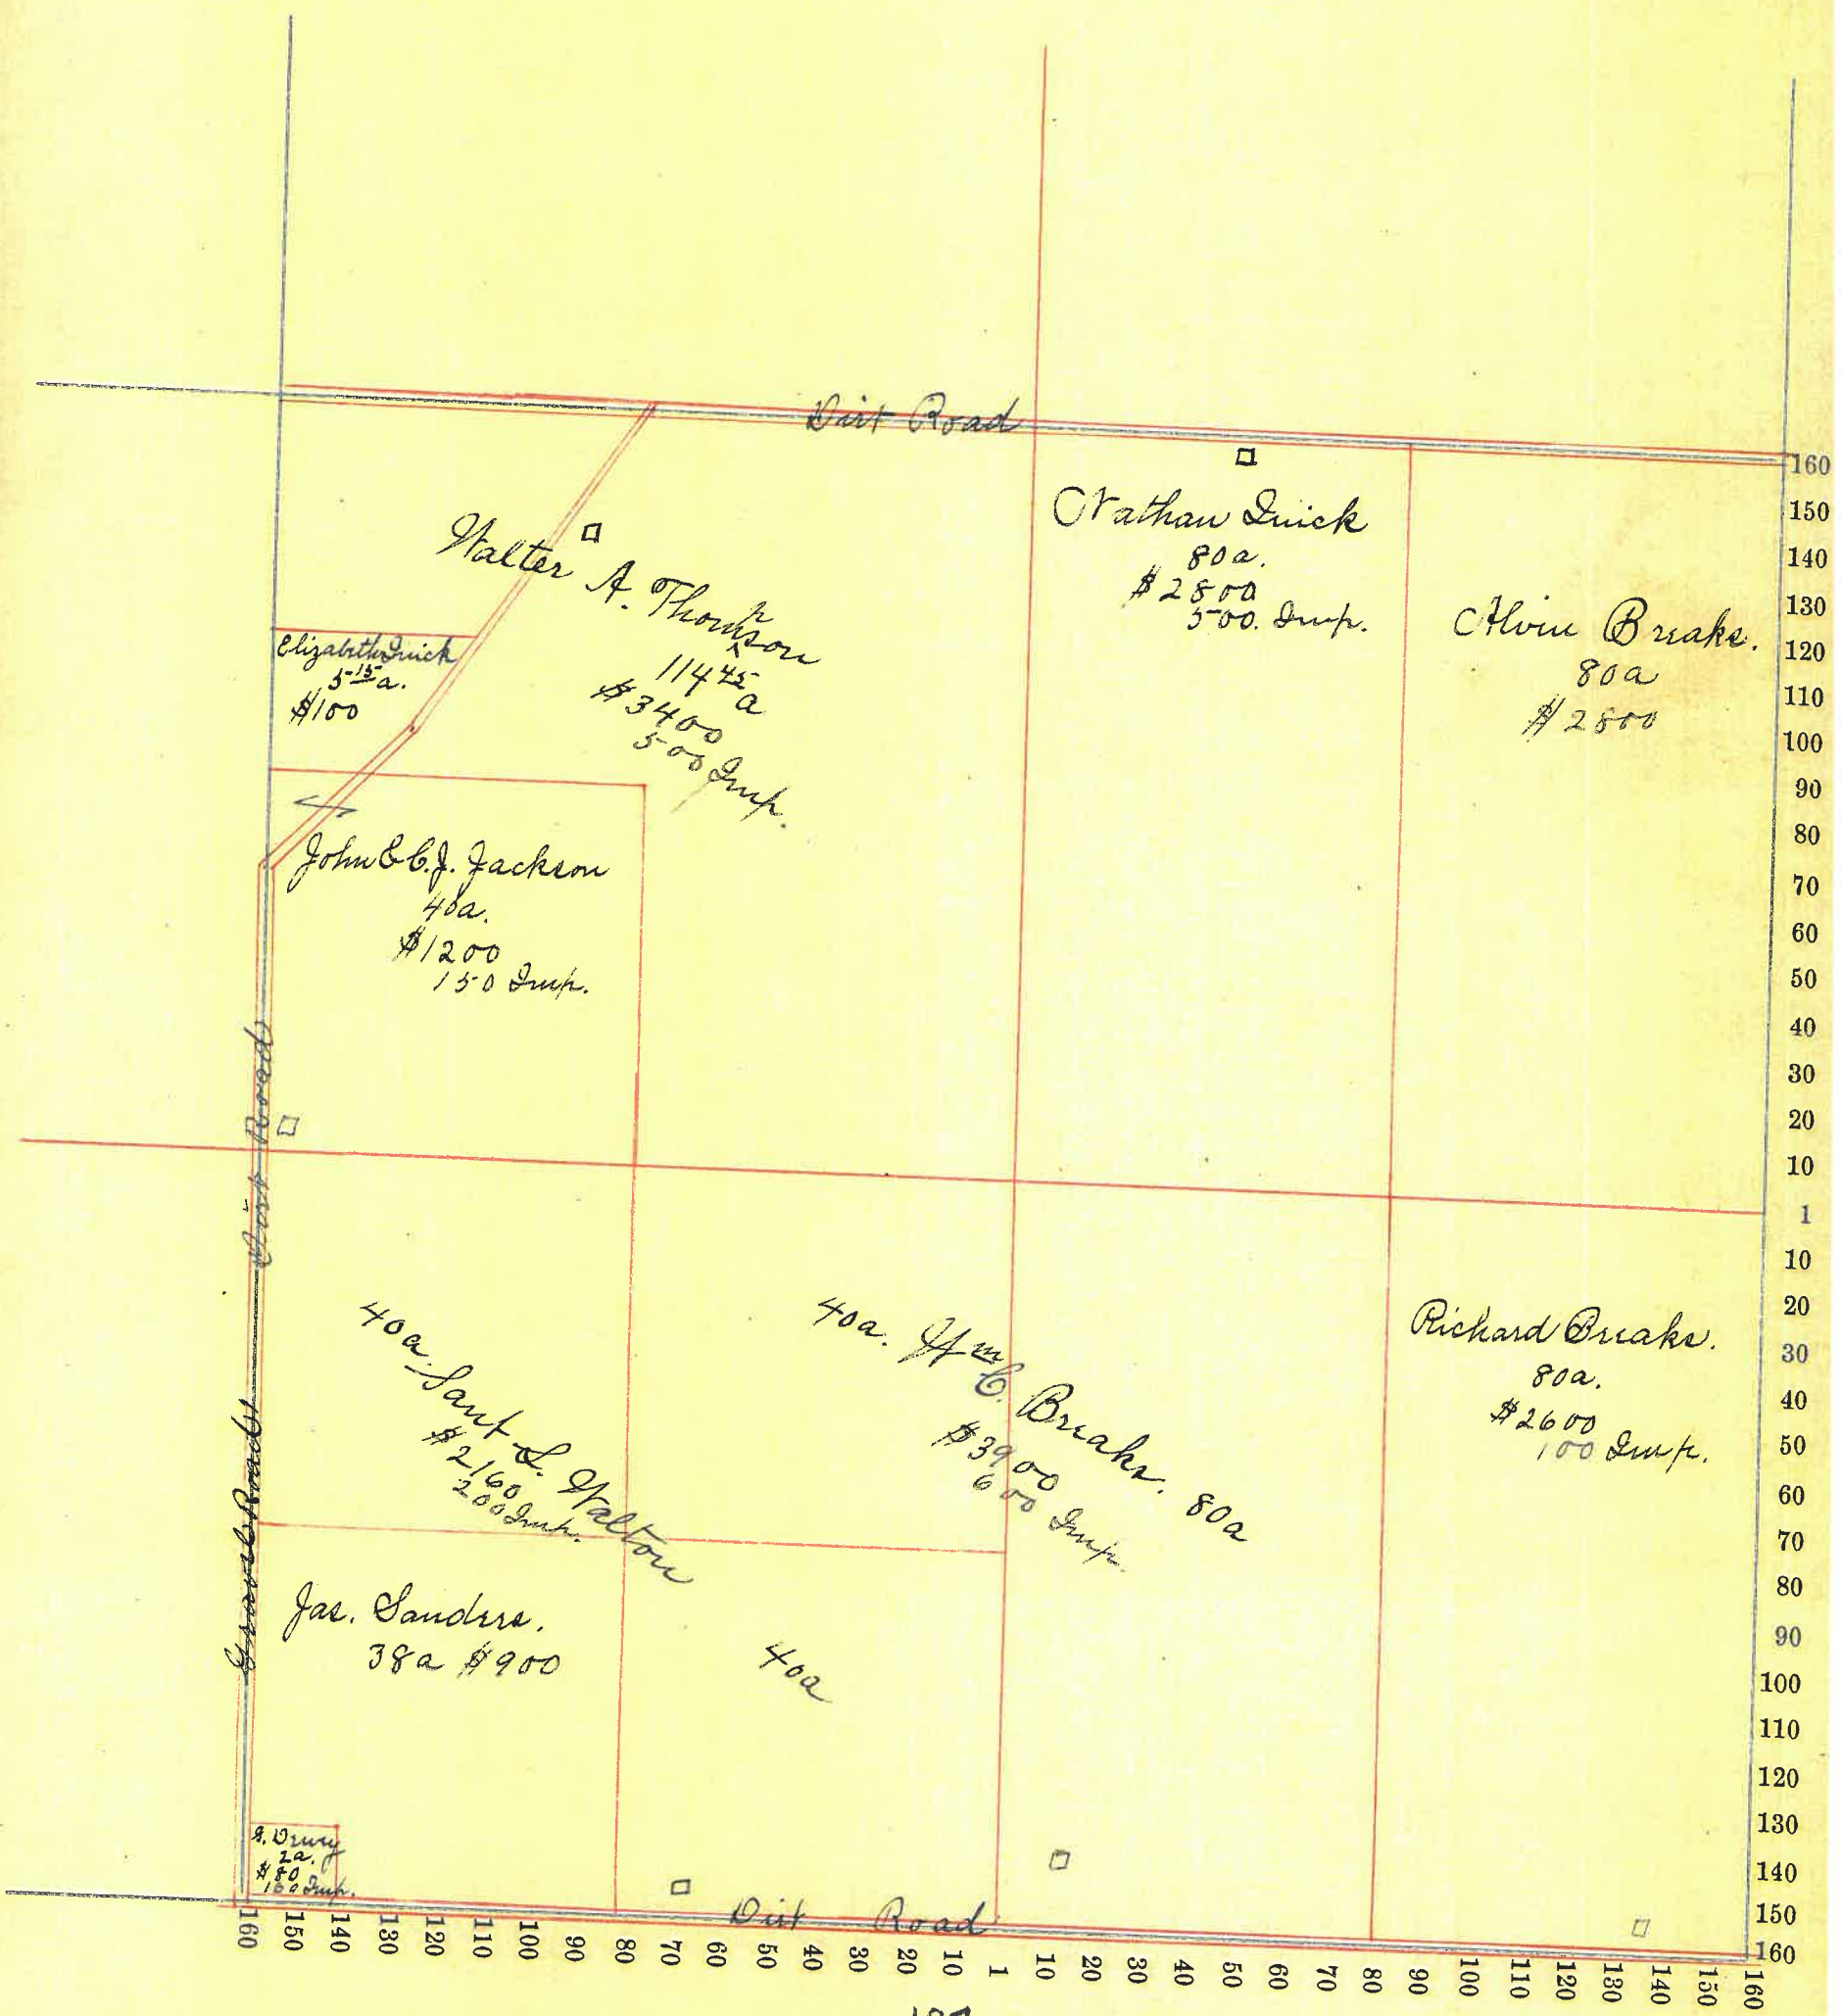 Dirt Road
Walter A. Thompson
114 45 a
$3400
500 Imp.
Nathan Quick
80a.
$2800
500. Imp.
Alvin Breaks.
80a
$2800
Elizabeth Quick
5 15 a.
$100
John & C. J. Jackson
40a.
$1200
150 Imp.
Dirt Road
Gravel Road
40a. L. Walton
$2160
200 Imp.
40a. Wm C. Breaks. 80a
$3900
600 Imp.
Richard Breaks.
80a.
$2600
100 Imp.
Jas. Sanders.
38a $900
40a
Drury
2a.
$80
100 Imp.
Dirt Road
160
150
140
130
120
110
100
90
80
70
60
50
40
30
20
10
1
10
20
30
40
50
60
70
80
90
100
110
120
130
140
150
160
160 150 140 130 120 110 100 90 80 70 60 50 40 30 20 10 1 10 20 30 40 50 60 70 80 90 100 110 120 130 140 150 160